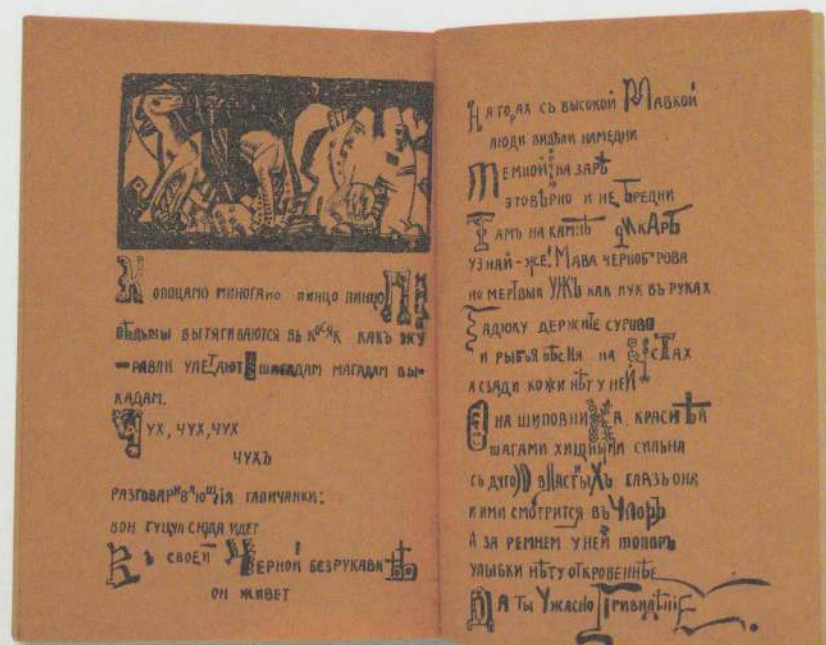 КОПОЦАМО МИНОГАМО ПИНЦО ПИНЦО ПИНЦО
ВѢДЬМЫ ВЫТЯГИВАЮТСЯ ВЬ КОСЯК КАКЪ ЖУ
–РАВЛИ УЛЕТАЮТ ШАГАДАМ МАГАДАМ ВЫ-
КАДАМ.
ЧУХ, ЧУХ, ЧУХ
ЧУХЪ
РАЗГОВАРИВАЮЩІЯ ГАЛИЧАНКИ:
ВОН ГУЦУЛ СЮДА ИДЕТ
ВЪ СВОЕЙ ЧЕРНОЙ БЕЗРУКАВКѢ
ОН ЖИВЕТ
НА ГОРАХ СЪ ВЫСОКОЙ МАВКОЙ
ЛЮДИ ВИДѢЛИ НАМЕДНИ
ТЕМНОЙ НА ЗАРѢ
ЭТО ВѢРНО И НЕ БРЕДНИ
ТАМЪ НА КАМНѢ ДИКАРЬ
УЗНАЙ-ЖЕ! МАВА ЧЕРНОБРОВА
НО МЕРТВЫЙ УЖЪ КАК ЛУК ВЪ РУКАХ
ГАДЮКУ ДЕРЖИТЕ СУРОВО
И РЫБЬЯ ПѢСНЯ НА УСТАХ
А СЗАДИ КОЖИ НѢТ У НЕЙ
ОНА ШИПОВНИКА КРАСНѢЙ
ШАГАМИ ХИЩНЫМИ СИЛЬНА
СЪ ДУГОЮ ВЛАСТЫХЪ ГЛАЗЬ ОНА
И ИМИ СМОТРИТСЯ ВЪ УПОРЪ
А ЗА РЕМНЕМ У НЕЙ ТОПОРЪ
УЛЫБКИ НѢТУ ОТКРОВЕННѢЕ
ДА ТЫ УЖАСНО ПРИВИДѢНІЕ.